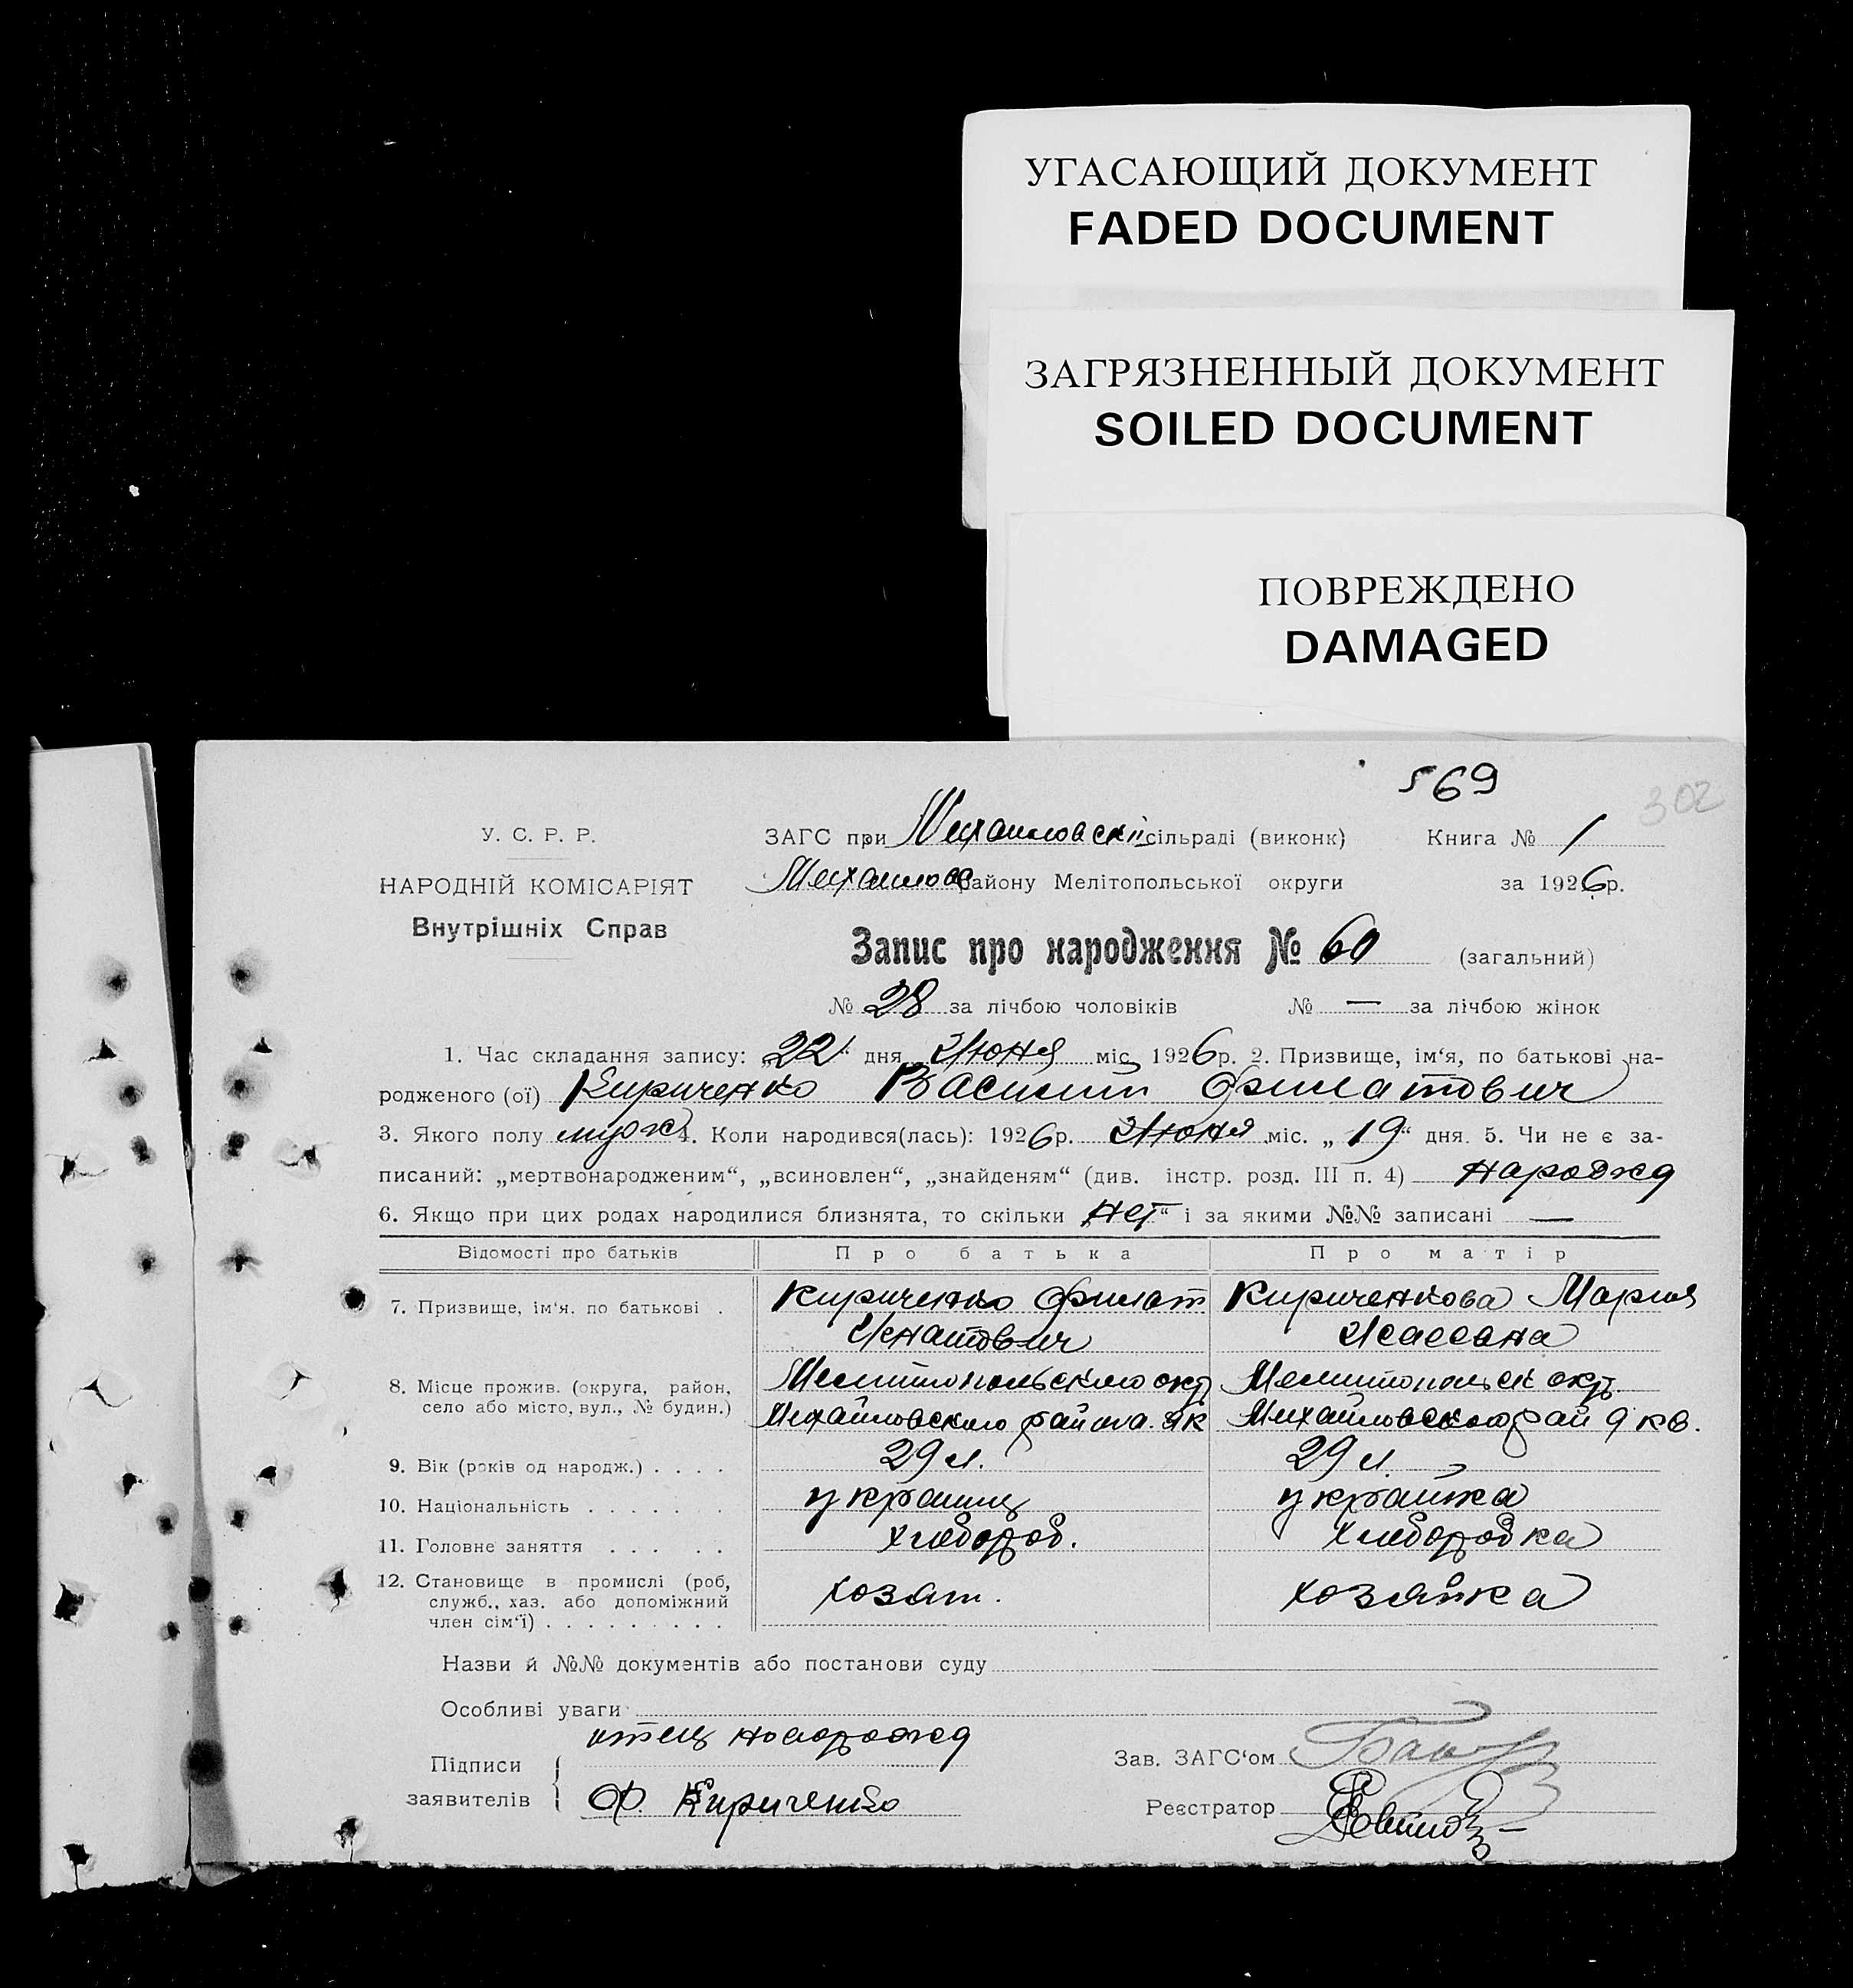 УГАСАЮЩИЙ ДОКУМЕНТ
FADED DOCUMENT
ЗАГРЯЗНЕННЫЙ ДОКУМЕНТ
SOILED DOCUMENT
ПОВРЕЖДЕНО
DAMAGED
569
302
У. С. Р. Р.
НАРОДНІЙ КОМІСАРІЯТ
Внутрішніх Справ
ЗАГС при Михайловскій сільраді (виконк) Книга № 1
Михайлов району Мелітопольської округи за 1926р.
Запис про народження № 60 (загальний)
№ 28 за лічбою чоловіків № — за лічбою жінок
1. Час складання запису: „22“ дня Июня міс. 1926р. 2. Призвище, ім‘я, по батькові на-
родженого (ої) Кириченко Василий Филатович
3. Якого полу муж 4. Коли народився(лась): 1926р. Июня міс. „19“ дня. 5. Чи не є за-
писаний: „мертвонародженим“, „всиновлен“, „знайденям“ (див. інстр. розд. III п. 4) нарожд
6. Якщо при цих родах народилися близнята, то скільки „нет“ і за якими №№ записані —
Відомості про батьків Про батька Про матір
7. Призвище, ім‘я. по батькові . Кириченко Филат Кириченкова Мария
Игнатович Исаевна
8. Місце прожив. (округа, район, Мелитопольского окр Мелитопольск окр.
село або місто, вул., № будин.) Михайловского района 9к Михайловского рай 9 кв.
9. Вік (років од народж.) . . . . 29 л. 29 л.
10. Національність . . . . . . украинц украинка
11. Головне заняття . . . . . хлебороб. хлеборобка
12. Становище в промислі (роб, хозяин. хозяйка
служб., хаз. або допоміжний
член сім‘ї) . . . . . . . . .
Назви й №№ документів або постанови суду
Особливі уваги
отец новорожд
Підписи
заявителів Ф. Кириченко
Зав. ЗАГС‘ом
Реєстратор